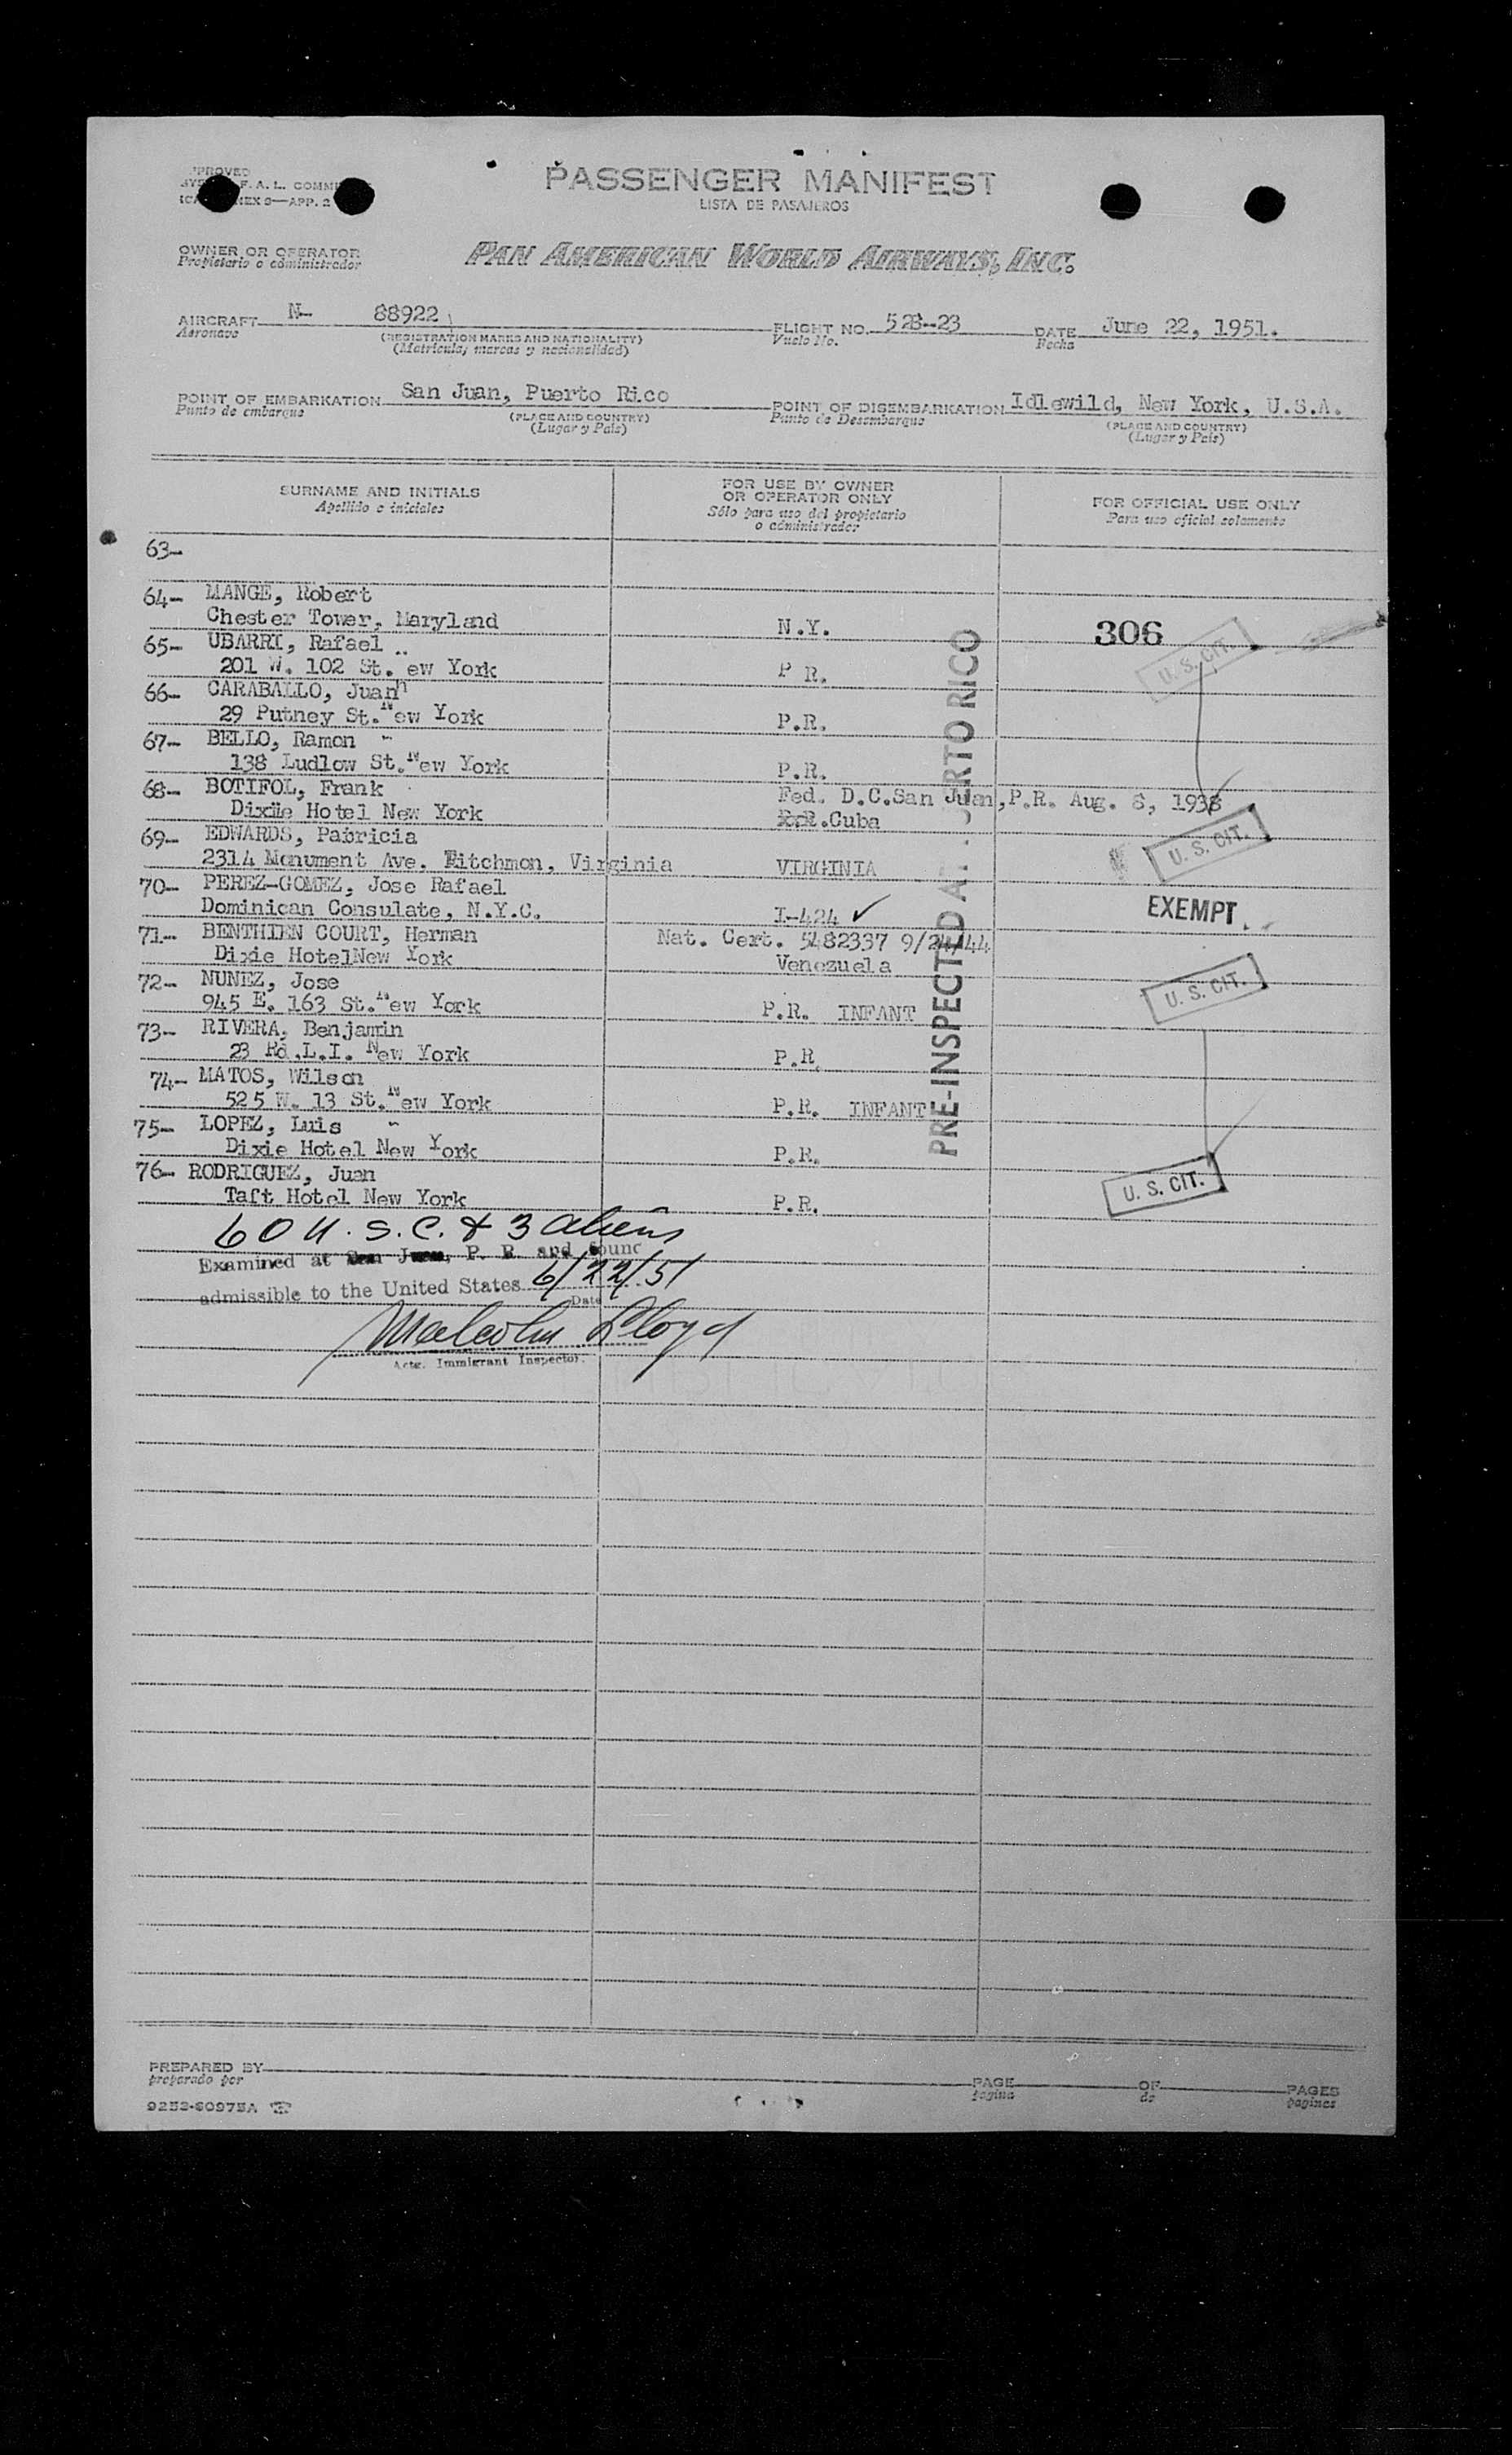 PASSENGER MANIFEST
LISTA DE PASAJEROS
F. A. L.
—APP. 2
OWNER OR OPERATOR
Propietario o administrador
PAN AMERICAN WORLD AIRWAYS, INC.
AIRCRAFT N- 88922 FLIGHT NO. 528-23 DATE June 22, 1951.
Aeronave (REGISTRATION MARKS AND NATIONALITY) Vuelo No. Fecha
(Matricula, marcas y nacionalidad)
POINT OF EMBARKATION San Juan, Puerto Rico POINT OF DISEMBARKATION Idlewild, New York, U.S.A.
Punto de embarque (PLACE AND COUNTRY) Punto de Desembarque (PLACE AND COUNTRY)
(Lugar y País) (Lugar y País)
SURNAME AND INITIALS FOR USE BY OWNER OR OPERATOR ONLY FOR OFFICIAL USE ONLY
Apellido e iniciales Sólo para uso del propietario o administrador Para uso oficial solamente
63-
64- MANGE, Robert
Chester Tower, Maryland N.Y. 306 U. S. CIT.
65- UBARRI, Rafael
201 W. 102 St. ew York P R.
66- CARABALLO, Juan
29 Putney St. New York P.R.
67- BELLO, Ramon
138 Ludlow St. New York P.R.
68- BOTIFOL, Frank Fed. D.C.San Juan,P.R. Aug. 8, 1938
Dixie Hotel New York Cuba U. S. CIT.
69- EDWARDS, Patricia
2314 Monument Ave. Ritchmon, Virginia VIRGINIA
70- PEREZ-GOMEZ, Jose Rafael
Dominican Consulate, N.Y.C. I-424 ✓ EXEMPT
71- BENTHIEN COURT, Herman Nat. Cert. 5482337 9/24/44
Dixie HotelNew York Venezuela U. S. CIT.
72- NUNEZ, Jose
945 E. 163 St. New York P.R. INFANT
73- RIVERA, Benjamin
23 Rd.L.I. New York P.R.
74- MATOS, Wilson
525 W. 13 St. New York P.R. INFANT
75- LOPEZ, Luis
Dixie Hotel New York P.R.
76- RODRIGUEZ, Juan
Taft Hotel New York P.R. U. S. CIT.
PRE-INSPECTED AT RTO RICO
60 U. S. C. & 3 aliens
Examined at San Juan, P. R. and found
admissible to the United States 6/22/51
Date
Malcolm Lloyd
Actg. Immigrant Inspector.
PREPARED BY PAGE OF PAGES
preparado por página de páginas
9253-60975A